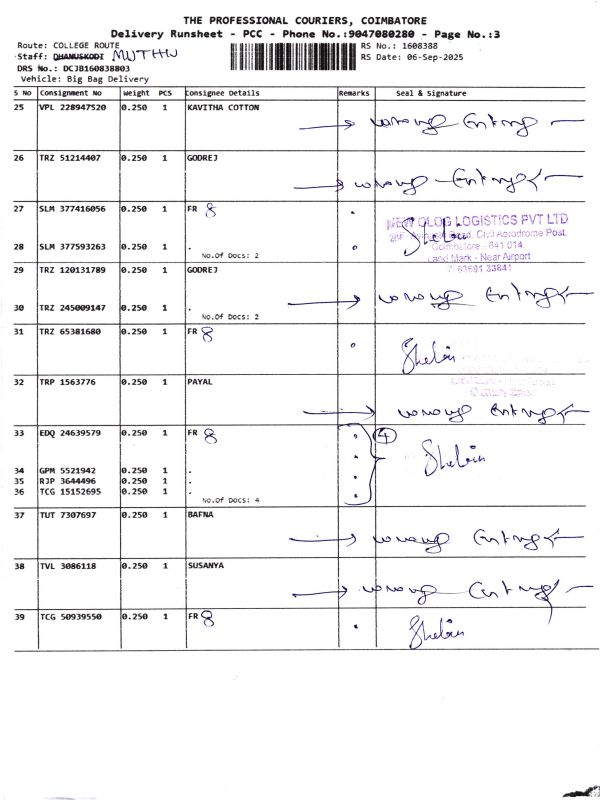 THE PROFESSIONAL COURIERS, COIMBATORE
Delivery Runsheet - PCC - Phone No.:9047080280 - Page No.:3
Route: COLLEGE ROUTE RS No.: 1608388
Staff: DHANUSKODI MUTHU RS Date: 06-Sep-2025
DRS No.: DCJB160838803
Vehicle: Big Bag Delivery
S No Consignment No Weight PCS Consignee Details Remarks Seal & Signature
25 VPL 228947520 0.250 1 KAVITHA COTTON
worong Entrny
26 TRZ 51214407 0.250 1 GODREJ
worong Entrny
27 SLM 377416056 0.250 1 FR 8
NEW GLOG LOGISTICS PVT LTD
Road, Civil Aerodrome Post
Shebin
28 SLM 377593263 0.250 1 .
Coimbatore - 641 014
No.Of Docs: 2
Land Mark - Near Airport
29 TRZ 120131789 0.250 1 GODREJ
worong Entrny
30 TRZ 245009147 0.250 1 .
No.Of Docs: 2
31 TRZ 65381680 0.250 1 FR 8
Shebin
32 TRP 1563776 0.250 1 PAYAL
worong Entrny
33 EDQ 24639579 0.250 1 FR 8 4
Shebin
34 GPM 5521942 0.250 1 .
35 RJP 3644496 0.250 1 .
36 TCG 15152695 0.250 1 .
No.Of Docs: 4
37 TUT 7307697 0.250 1 BAFNA
worong Entrny
38 TVL 3086118 0.250 1 SUSANYA
worong Entrny
39 TCG 50939550 0.250 1 FR 8
Shebin